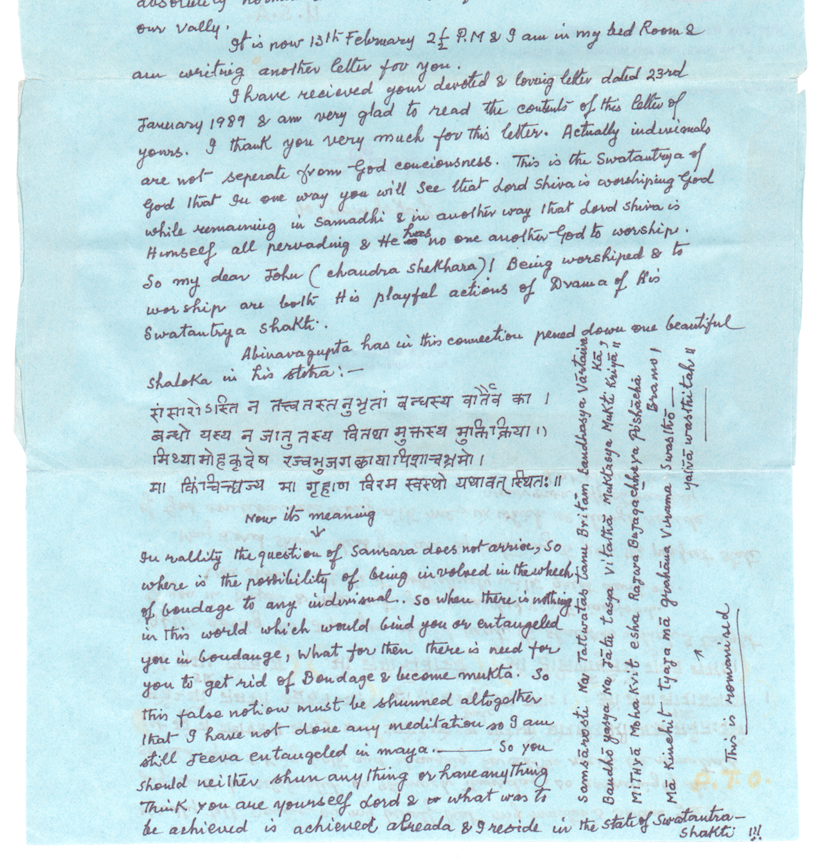 absolutely
our vally.
It is now 13th February 2½ P.M & I am in my bed Room &
am writing another letter for you.
I have recieved your devoted & loving letter dated 23rd
January 1989 & am very glad to read the contents of this letter of
yours. I thank you very much for this letter. Actually indivisuals
are not seperate from God conciousness. This is the Swatantrya of
God that In one way you will see that Lord Shiva is worshiping God
while remaining in Samadhi & in another way that Lord Shiva is
Himself all pervading & He has no one another God to worship.
So my dear John (chandra shekhara)! Being worshiped & to
worship are both His playful actions of Drama of His
Swatantrya Shakti.
Abinavagupta has in this connection pened down one beautiful
Shaloka in his stotra:—
संसारोऽस्ति न तत्त्वतस्तनुभृतां बन्धस्य वार्तैव का ।
बन्धो यस्य न जातु तस्य वितथा मुक्तस्य मुक्तिक्रिया ।)
मिथ्यामोहकृदेष रज्जुभुजगच्छायापिशाचभ्रमो ।
मा किंचित्त्यज मा गृहाण विरम स्वस्थो यथावत् स्थितः॥
Now its meaning
↓
In rallity the question of Sansara does not arrive, So
where is the possibility of being involved in the wheel
of bondage to any indivisual. So when there is nothing
in this world which would bind you or entangeled
you in boudange, what for then there is need for
you to get rid of Bondage & become mukta. So
this false notion must be shunned altogather
that I have not done any meditation so I am
still Jeeva entangeled in maya. —— So you
should neither shun anything or have anything
Think you are yourself Lord & what was to
be achieved is achieved alreada & I reside in the State of Swatantra—
Shakti !!!
Samsārosti Na Tattwatas tanu Britām baudhasya Vārtaiva
Kā,
Baudhō yasya Na Jātū tasya Vitathā Muktasya Mukti Kriyā॥
MiThyā Moha Kvit esha Rajwa Bajagachheya Pishāchā
Bramo।
Mā Kinchit tyaja mā grahāna Virama Swasthō—
yathā wasthitah॥
↑
This is romanised
P.T.O.